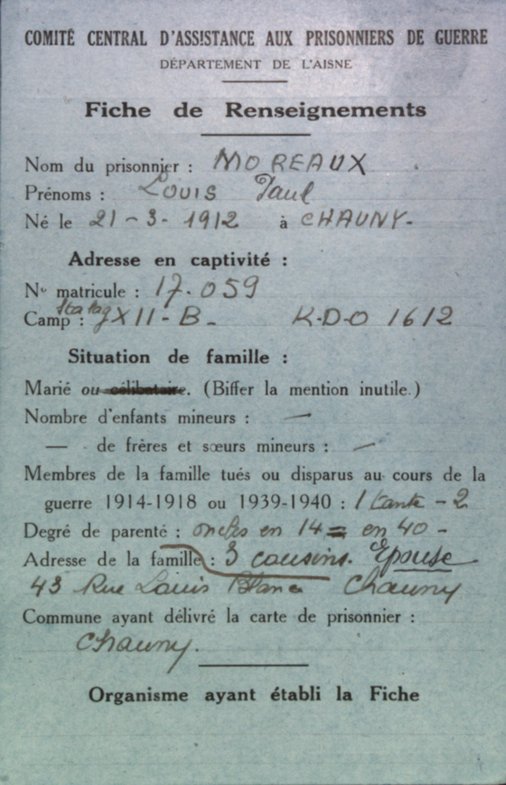 COMITÉ CENTRAL D'ASSISTANCE AUX PRISONNIERS DE GUERRE
DÉPARTEMENT DE L'AISNE
Fiche de Renseignements
Nom du prisonnier : MOREAUX
Prénoms : Louis Paul
Né le 21-3-1912 à CHAUNY-
Adresse en captivité :
No matricule : 17.059
Camp : Stalag XII-B- K.D.O 1612
Situation de famille :
Marié ou célibataire. (Biffer la mention inutile.)
Nombre d'enfants mineurs : —
— de frères et sœurs mineurs : —
Membres de la famille tués ou disparus au cours de la
guerre 1914-1918 ou 1939-1940 : 1 tante - 2
Degré de parenté : oncles en 14 = en 40 -
Adresse de la famille : 3 cousins. Epouse
43 Rue Louis Blanc Chauny
Commune ayant délivré la carte de prisonnier :
Chauny.
Organisme ayant établi la Fiche